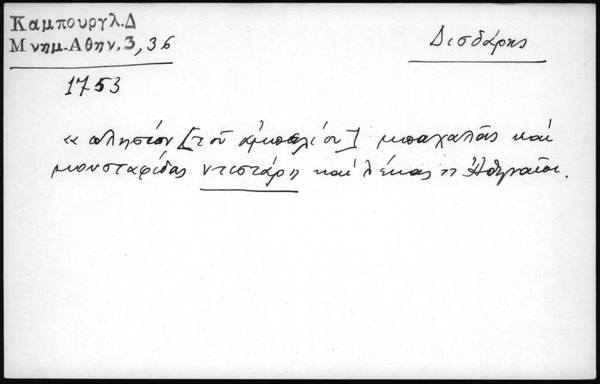 Καμπουργλ.Δ
Μνημ.Αθην.3,36
Δισδάρης
1753
« πλησίον [τοῦ ἀμπελίου] μπαχαλᾶς καὶ
μουσταφίδας ντιστάρη καὶ λέκας " Ἀθηναῖοι.